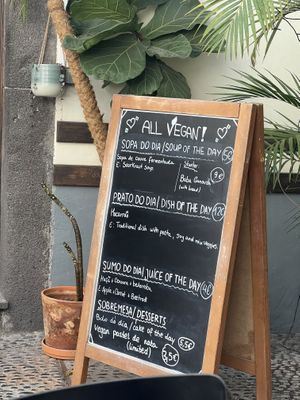 ALL VEGAN!
SOPA DO DIA/SOUP OF THE DAY 5€
Sopa de couve fermentada
E: Sauerkraut Soup
Starter
Baba Ganoush
(with bread)
9€
PRATO DO DIA/DISH OF THE DAY 12€
Macarrão
E: Traditional dish with pasta, soy and mix veggies
SUMO DO DIA/JUICE OF THE DAY 4€
Maçã + Cenoura + beterraba
E: Apple + Carrot + Beetroot
SOBREMESA/DESSERTS
Bolo do dia/cake of the day 5.5€
Vegan pastel de nata
(limited) 2,5€